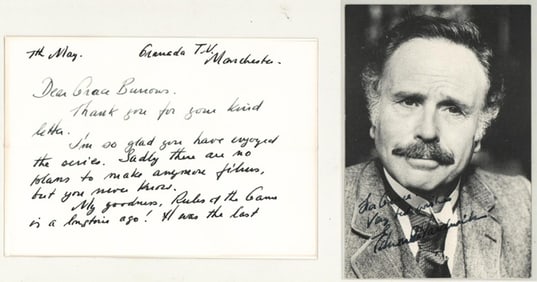 7th May. Granada T.V.
Manchester.
Dear Grace Burrows.
Thank you for your kind
letter.
I'm so glad you have enjoyed
the series. Sadly there are no
plans to make anymore films,
but you never know.
My goodness, Rules of the Game
is a longtime ago! It was the last
For Grace
Very best wishes
Edward Hardwicke